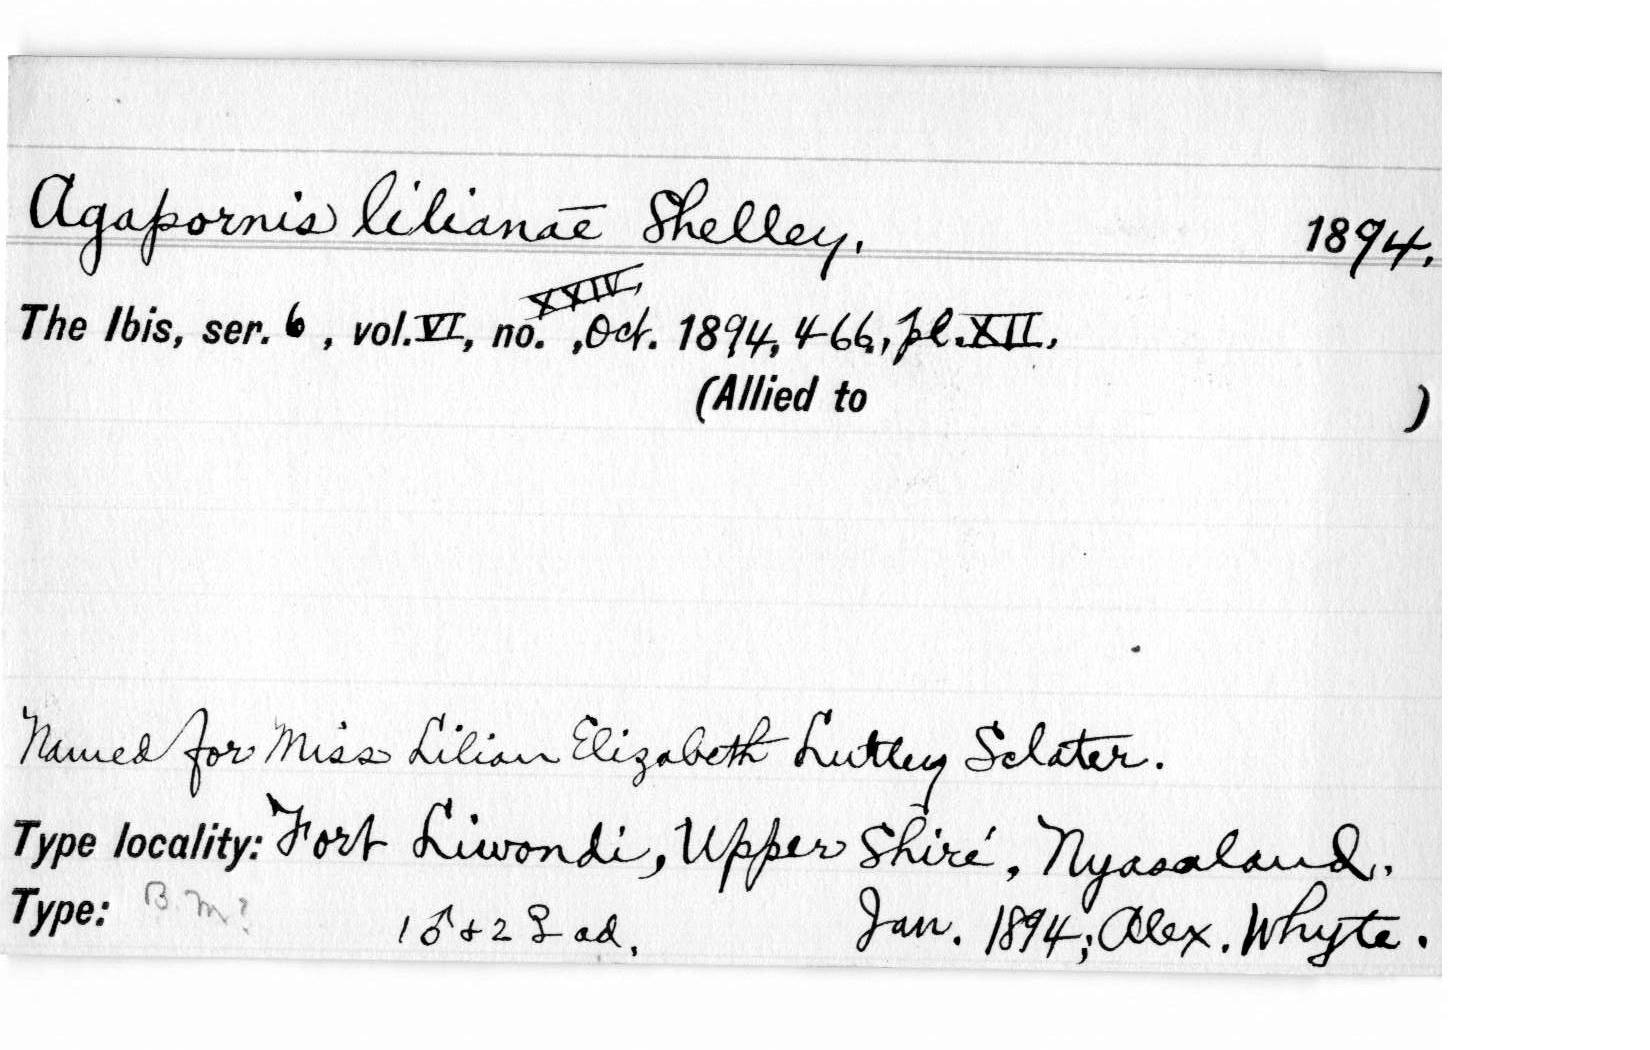 Agapornis lilianae Shelley. 1894.
The Ibis, ser. 6, vol. VI, no. XXIV, Oct. 1894, 466, pl. XII.
(Allied to )
Named for Miss Lilian Elizabeth Lutley Sclater.
Type locality: Fort Liwondi, Upper Shiré, Nyasaland.
Type: B.M? 1 ♂ + 2 ♀ ad. Jan. 1894; Alex. Whyte.